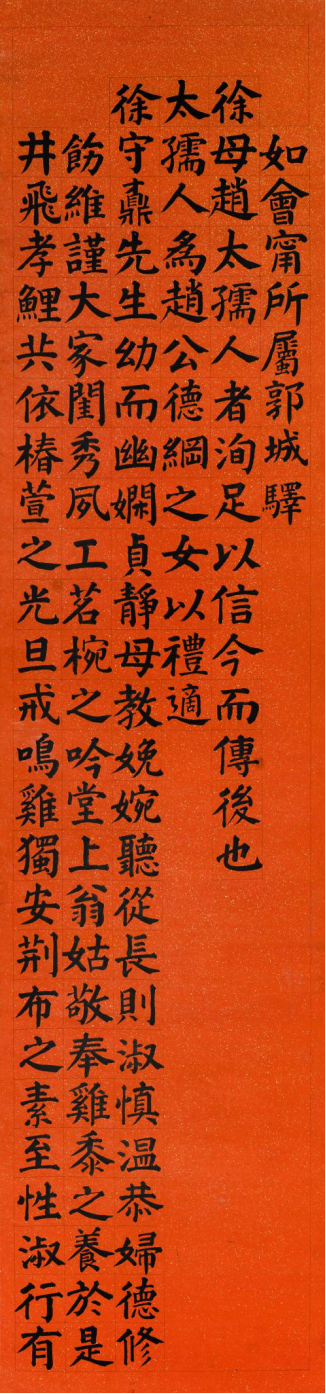 如會甯所屬郭城驛
徐母趙太孺人者洵足以信今而傳後也
太孺人爲趙公德綱之女以禮適
徐守鼒先生幼而幽嫻貞靜母教娩婉聽從長則淑慎温恭婦德修
飭維謹大家閨秀夙工茗椀之吟堂上翁姑敬奉雞黍之養於是
井飛孝鯉共依椿萱之光旦戒鳴雞獨安荆布之素至性淑行有